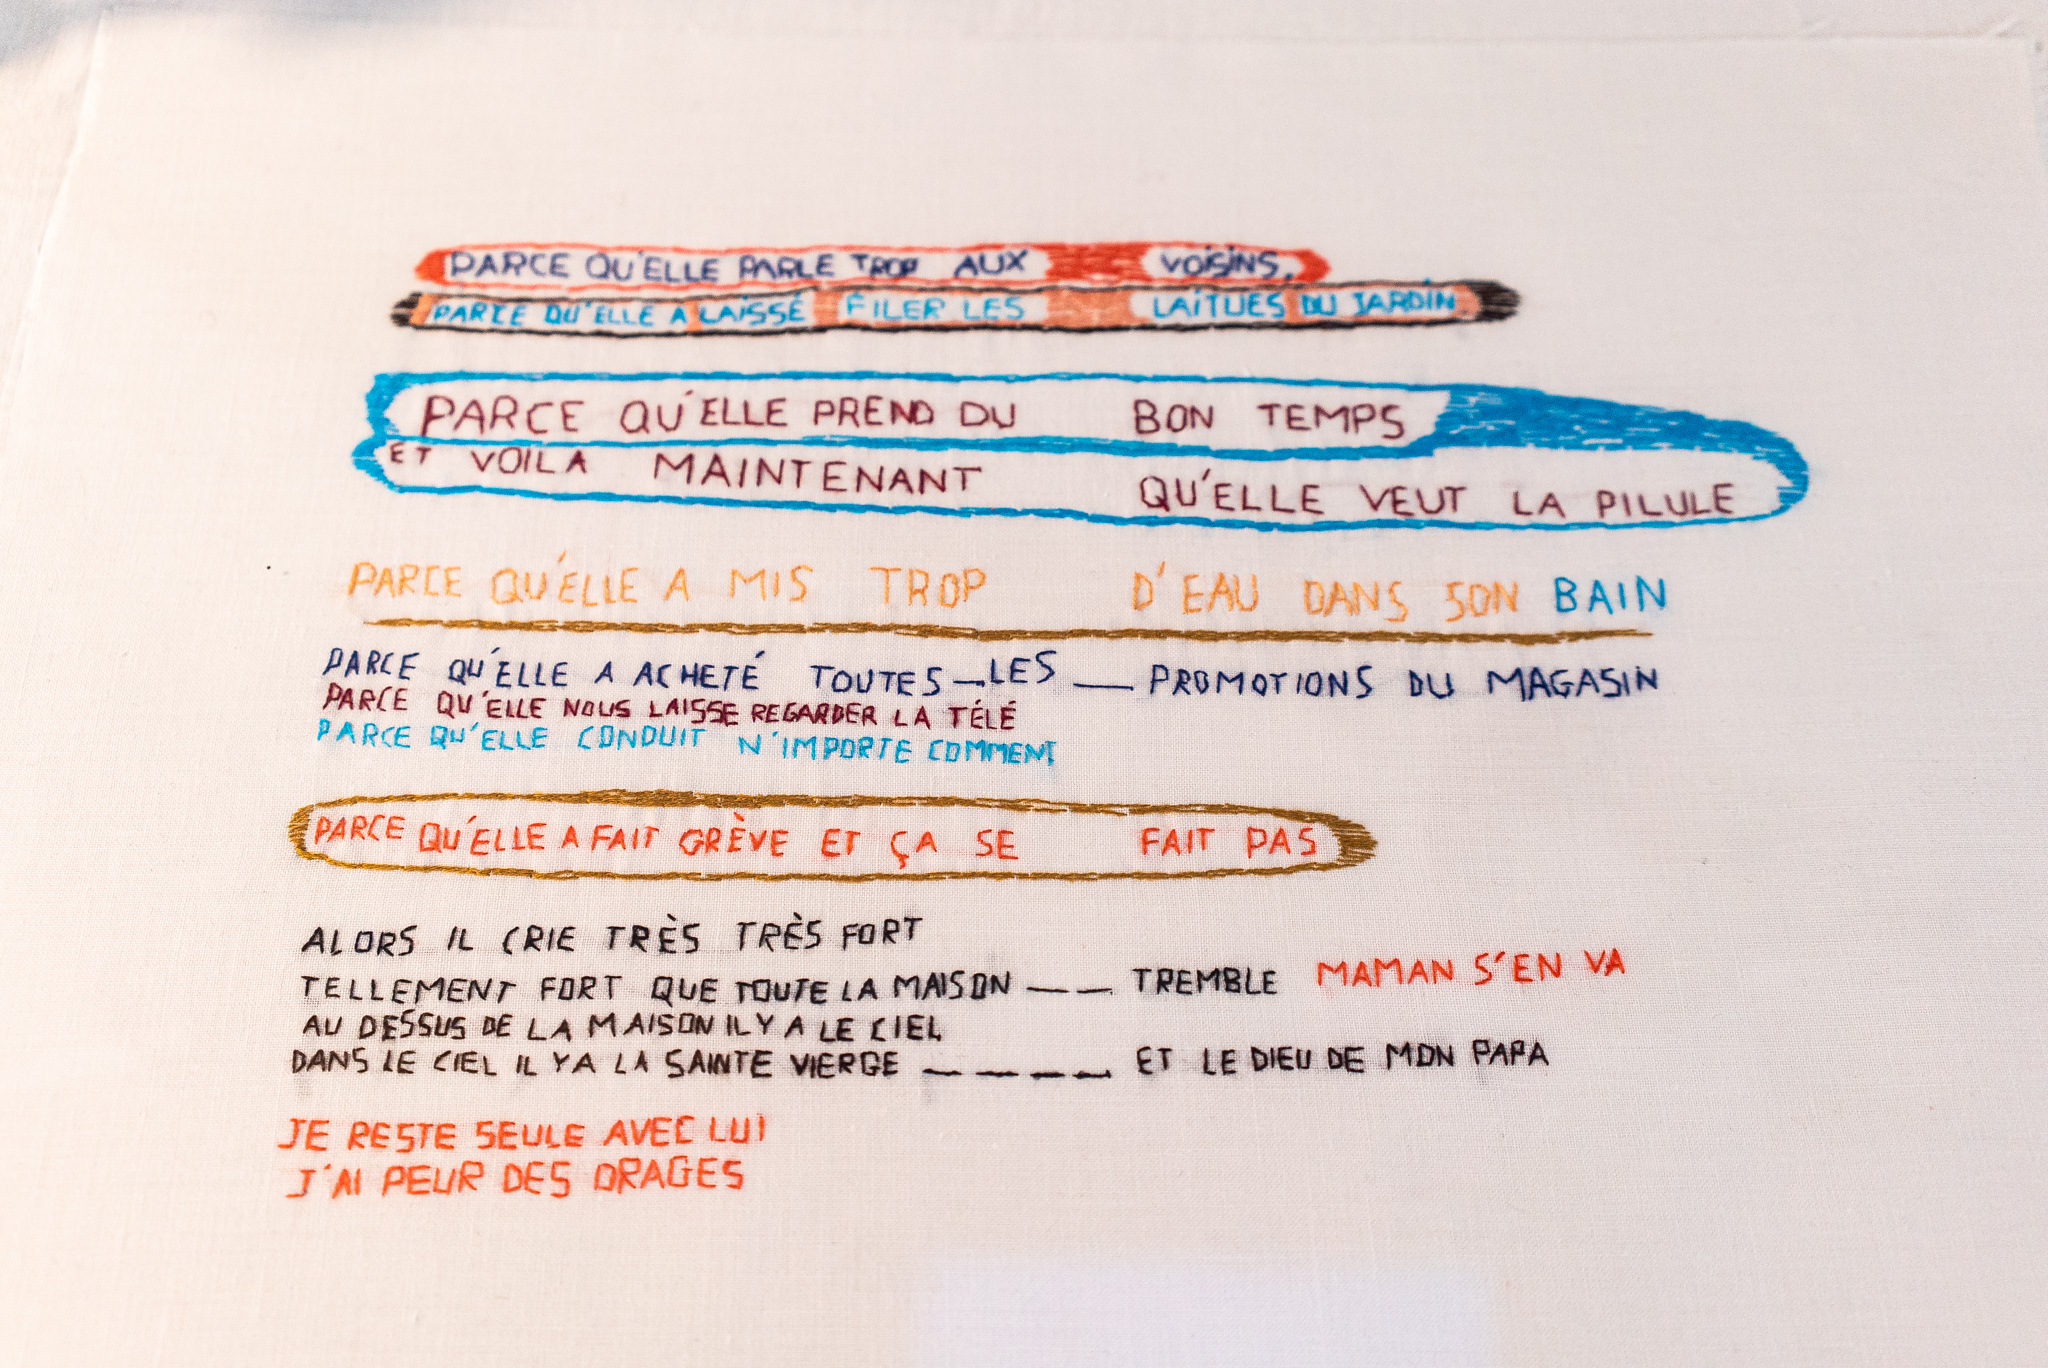 PARCE QU'ELLE PARLE TROP AUX VOISINS.
PARCE QU'ELLE A LAISSÉ FILER LES LAITUES DU JARDIN.
PARCE QU'ELLE PREND DU BON TEMPS
ET VOILA MAINTENANT QU'ELLE VEUT LA PILULE
PARCE QU'ELLE A MIS TROP D'EAU DANS SON BAIN
PARCE QU'ELLE A ACHETÉ TOUTES—LES — PROMOTIONS DU MAGASIN
PARCE QU'ELLE NOUS LAISSE REGARDER LA TÉLÉ
PARCE QU'ELLE CONDUIT N'IMPORTE COMMENT
PARCE QU'ELLE A FAIT GRÈVE ET ÇA SE FAIT PAS
ALORS IL CRIE TRÈS TRÈS FORT
TELLEMENT FORT QUE TOUTE LA MAISON — — TREMBLE MAMAN S'EN VA
AU DESSUS DE LA MAISON IL Y A LE CIEL
DANS LE CIEL IL Y A LA SAINTE VIERGE — — — — ET LE DIEU DE MON PAPA
JE RESTE SEULE AVEC LUI
J'AI PEUR DES ORAGES